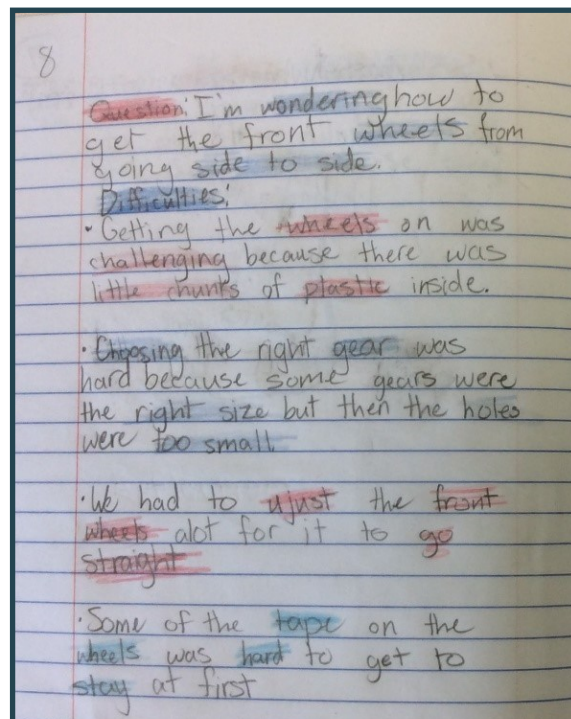 8
Question: I'm wondering how to
get the front wheels from
going side to side.
Difficulties:
• Getting the wheels on was
challenging because there was
little chunts of plastic inside.
• Choosing the right gear was
hard because some gears were
the right size but then the holes
were too small.
• We had to ujust the front
wheels alot for it to go
straight
• Some of the tape on the
wheels was hard to get to
stay at first